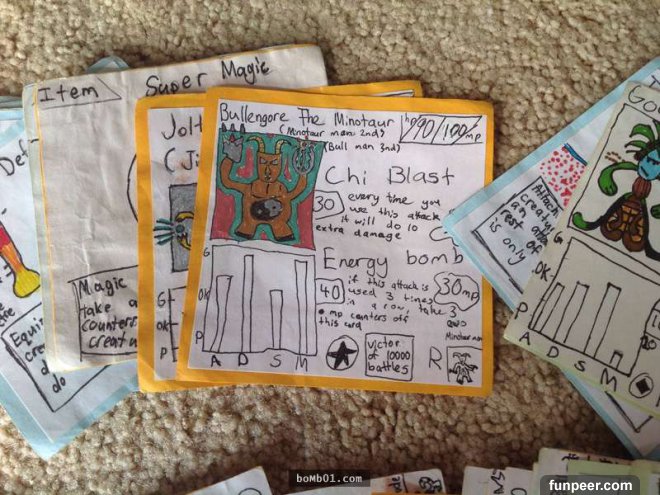 Item
Super Magic
Def
Magic
take a
counters
creatu
Equi
cre
do
Jolt
(Ji
G
OK
P
Bullengore The Minotaur
(Minotaur man 2nd)
(Bull man 3nd)
hp 90/100 mp
Chi Blast
30
every time you
use this attack
it will do 10
extra damage
Energy bomb
40
if this attack is
used 3 times
in a row, take 3
mp counters off
this card
30mp
G
OK
P
A D S M
victor
of 10000
battles
R
Minotaur man
Attach
creature
an
rest of
is only
Go
G
OK
P
A D S M
bomb01.com
funpeer.com